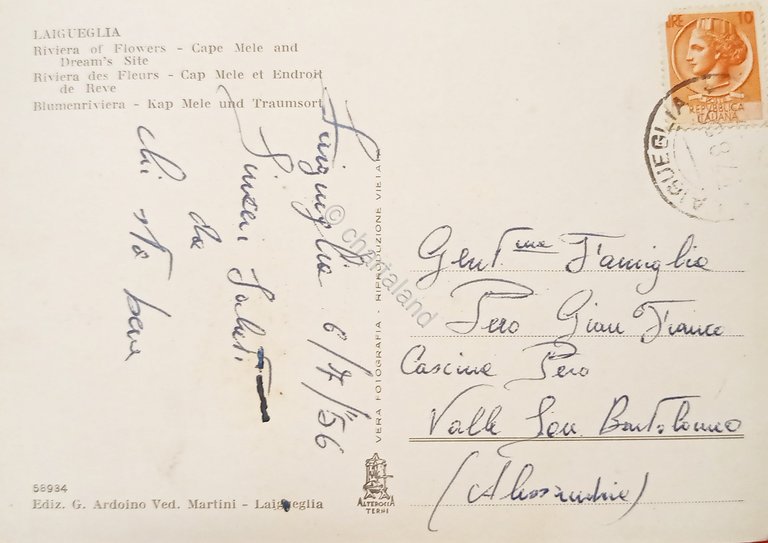 LAIGUEGLIA
Riviera of Flowers - Cape Mele and
Dream's Site
Riviera des Fleurs - Cap Mele et Endroit
de Reve
Blumenriviera - Kap Mele und Traumsort
Laigueglia 6/7/56
Sinceri Saluti
da
chi sta bene
© chartaland
VERA FOTOGRAFIA - RIPRODUZIONE VIETATA
LIRE 10
POSTE
REPVBBLICA
ITALIANA
LAIGUEGLIA
Gent.ma Famiglia
Pero Gian Franco
Cascina Pero
Valle San Bartolomeo
(Alessandria)
58934
Ediz. G. Ardoino Ved. Martini - Laigueglia
ALTEROCCA
TERNI